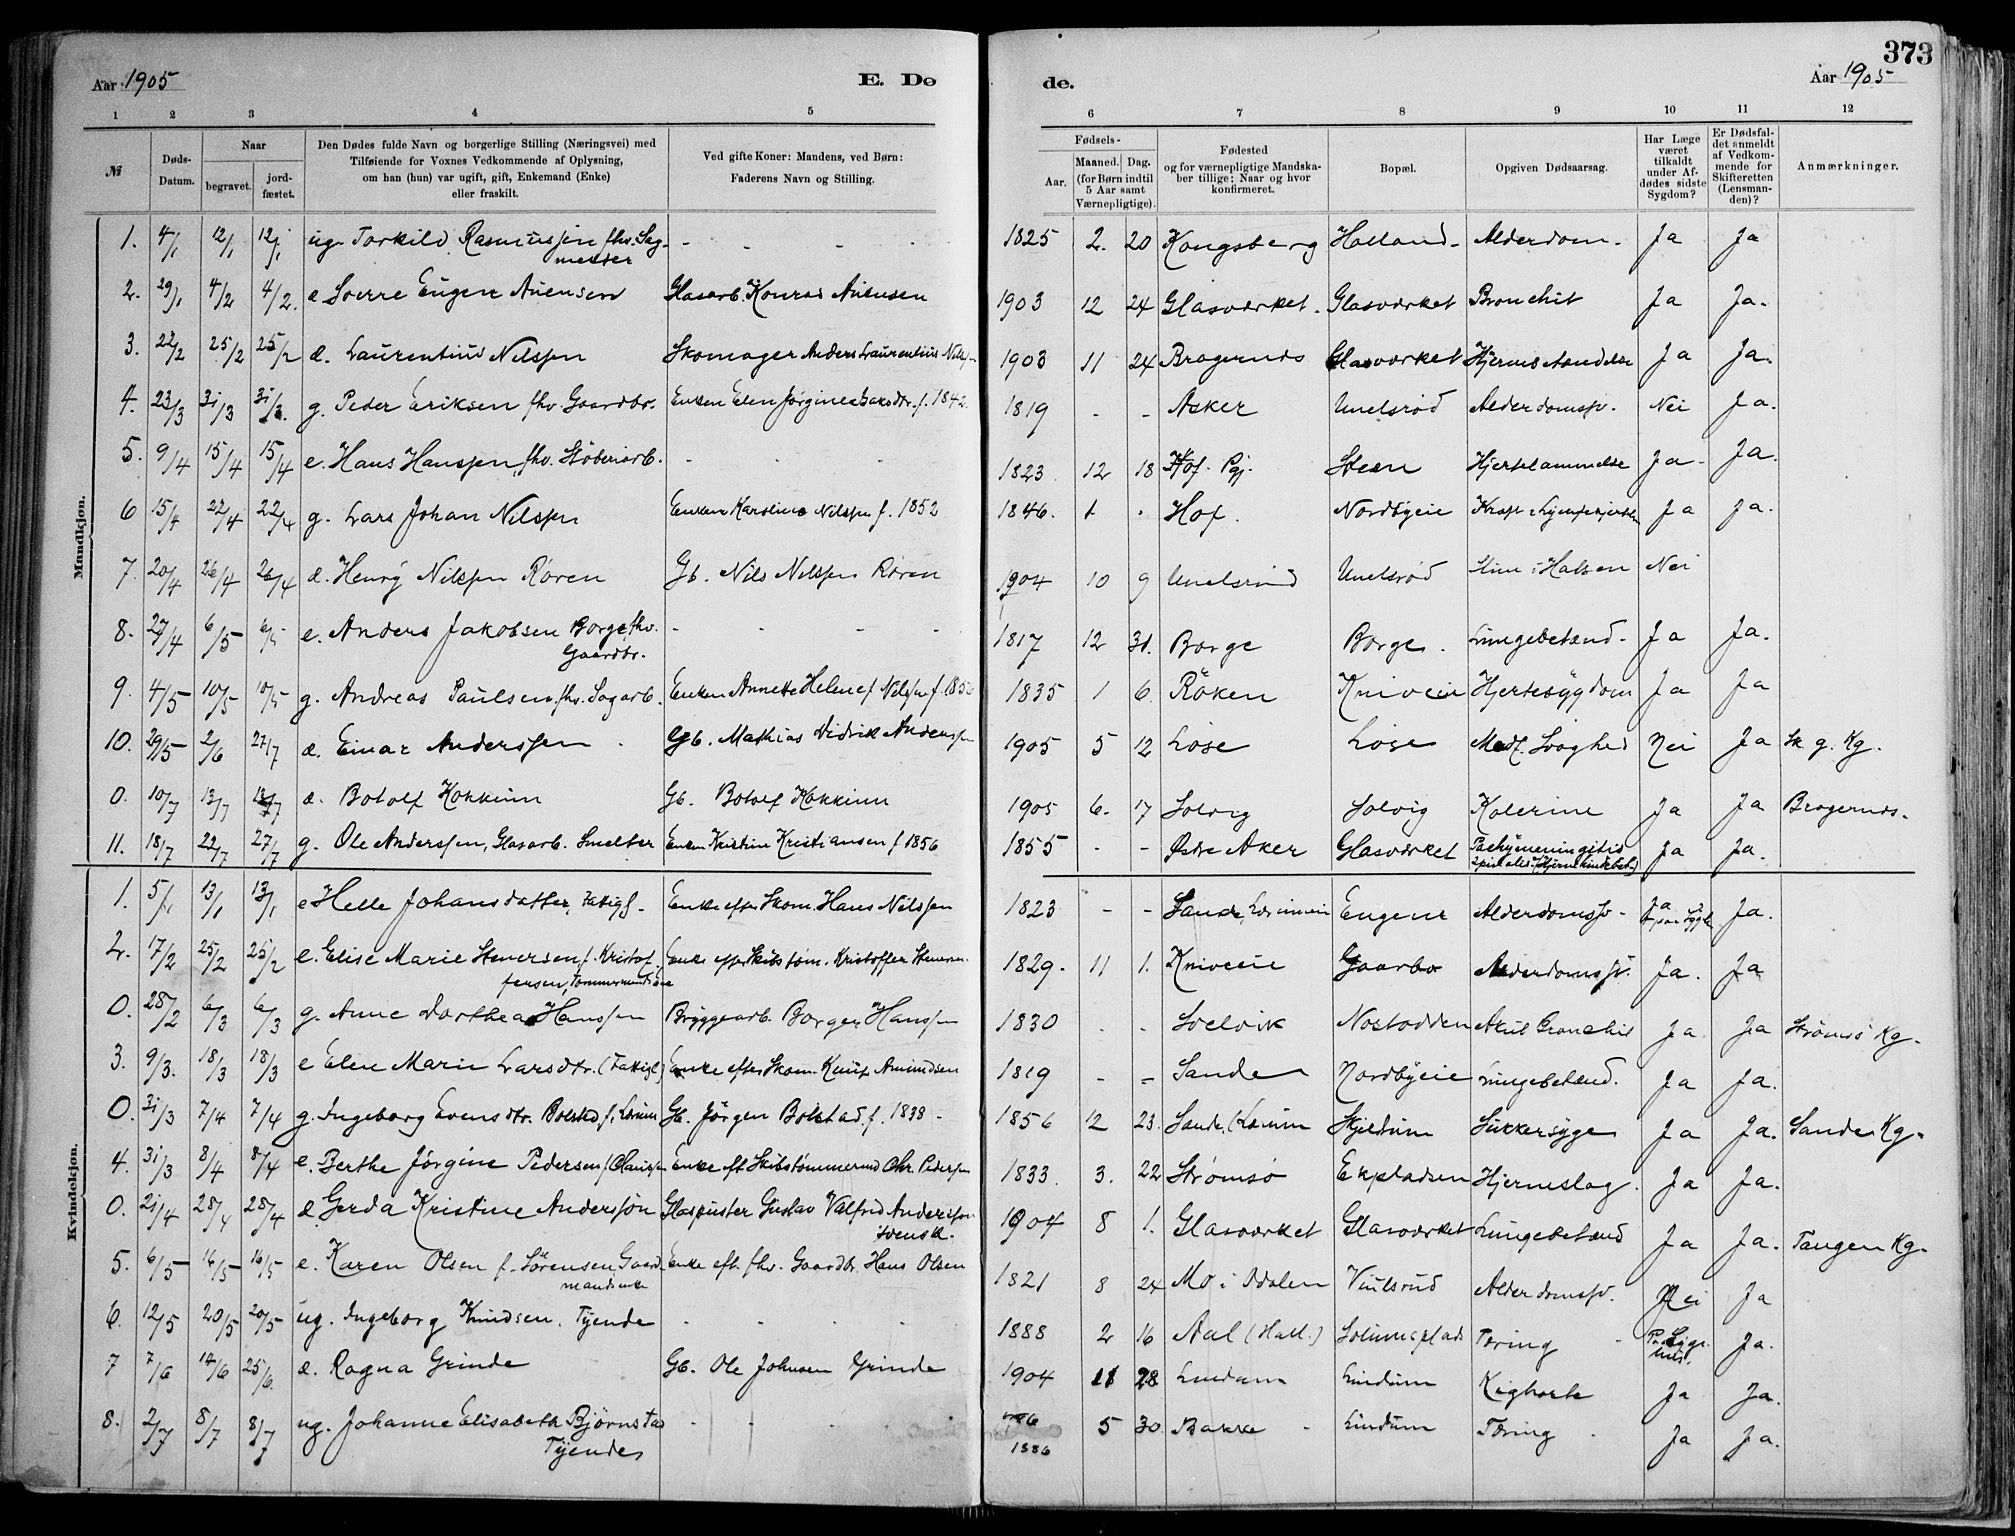 373
Aar 1905
E. Dø
de.
Aar 1905
1 2 3 4 5 6 7 8 9 10 11 12
№
Døds-Datum.
Naar
begravet.
jordfæstet.
Den Dødes fulde Navn og borgerlige Stilling (Næringsvei) med
Tilføiende for Voxnes Vedkommende af Oplysning,
om han (hun) var ugift, gift, Enkemand (Enke)
eller fraskilt.
Ved gifte Koner: Mandens, ved Børn:
Faderens Navn og Stilling.
Fødsels-
Aar.
Maaned.
Dag.
(for Børn indtil
5 Aar samt
Værnepligtige).
Fødested
og for værnepligtige Mandska-
ber tillige: Naar og hvor
konfirmeret.
Bopæl.
Opgiven Dødsaarsag.
Har Læge
været
tilkaldt
under Af-
dødes sidste
Sygdom?
Er Dødsfal-
det anmeldt
af Vedkom-
mende for
Skifteretten
(Lensman-
den)?
Anmærkninger.
Mandkjøn.
1. 4/1 12/1 12/1 ug. Torkild Rasmussen fhv. Sag-mester - - - - 1825 2. 20 Kongsberg Holland - Alderdom. Ja Ja
2. 29/1 4/2 4/2. æ Sverre Eugen Auensen Glasarb. Konrad Auensen 1903 12 24 Glasværket. Glasværket Bronchit Ja Ja.
3. 22/2 25/2 25/2 æ. Laurentius Nilssen Skomager Anders Laurentius Nilssen 1903 11 24 Bragernæs Glasværket Hjernebetændelse Ja Ja.
4. 23/3 31/3 31/3. g. Peder Eriksen fhv. Gaardbr. Enken Elen Jørgine f. 1842. 1819 - - Asker Unelsrød Alderdomssv. Nei Ja.
5. 9/4 15/4 15/4 e. Hans Hanssen, fhv. Støberiarb. - - - 1823 12 18 Hof. Pgj. Steen Hjertelammelse Ja Ja.
6 15/4 22/4 22/4 g. Lars Johan Nilssen Enken Karoline Nilssen f. 1852 1846. 1. . Hof. Nordbyeie Kræft i Ja Ja.
7. 20/4 26/4 26/4 æ. Henry Nilssen Røren Gb. Nils Nilssen Røren 1904 10 9 Unelsrud Unelsrød Slim i Halsen Nei
8. 27/4 6/5 6/5 e. Anders Jakobsen Borge, fhv. Gaardbr. - - - - 1817 12 31. Borge Borge. Lungebetænd. Ja Ja.
9. 4/5 10/5 10/5 g. Andreas Paulsen, fhv. Sagarb. Enken Annette Helene f. Nilssen f. 1835 1 6. Røken Kniveie Hjertesygdom Ja Ja
10. 29/5 2/6 27/7 æ. Einar Anderssen. Gb. Mathias Didrik Anderssen 1905 5 12 Løse Løse Medf. Svaghed Nei Ja Sk. g. Kg.
0. 10/7 13/7 13/7 æ. Botolf Kokkinn Gb. Botolf Kokkinn 1905 6. 17 Solvig Solvig Kolerine Ja Ja Bragernæs.
11. 18/7 22/7 27/7 g. Ole Anderssen, Glasarb. Smelter Enken Kristine Kristiansen f 1856 1855 - - Østre Aker Glasværket Pachymeningitis spinalis (Hjernehindebet.) Ja Ja.
Kvindekjøn.
1. 5/1 13/1 13/1 e Helle Johansdatter, Fattigl. Enke efter Skom. Hans Nilssen 1823 - - Sande, Engene Alderdomssv - Ja Ja.
2. 17/2 25/2 25/2 e. Elise Marie Stenersen f. Kristof-fersen, Tømmermandsenke Enke efter Skibstøm. Kristoffer Stenersen 1829. 11 1. Kniveie Gaarbo Alderdomssv. Ja. Ja
0. 28/2 6/3 6/3 g. Anne Dorthea Hanssen Bryggearb. Borger Hanssen 1830 - - Svelvik Nøstodden Akut Bronchit Ja Ja Strømsø Kg.
3. 9/3. 18/3 18/3 e Elen Marie Larsdtr. (Fattigl.) Enke efter Skom. Knut Amundsen 1819 - - Sande Nordbyeie Lungebetænd. Ja Ja.
0. 31/3 7/4 7/4 g. Ingeborg Evensdtr. Bolstad f. Lerum Gb. Jørgen Bolstad f. 1838 - 1856 12 23. Sande, (Lerum Skjeldrum Sukkersyge Ja Ja. Sande Kg.
4. 31/3 8/4 8/4 e. Berthe Jørgine Pedersen f. Olaussen Enke eft. Skibstømmermd Chr. Pedersen 1833. 3. 22 Strømsø Ekpladsen Hjerneslag. Ja Ja.
0. 21/4 28/4 28/4 æ Gerda Kristine Andersson Glaspuster Gustav Valfrid Andersson svensk. 1904 8 1. Glasværket Glasværket Lungebetænd Ja Ja. Tangen Kg.
5. 6/5 16/5 16/5 e. Karen Olsen f. Sørensen Gaard-mandsenke Enke eft. fhv. Gaardbr. Hans Olsen 1821 8 24 Mo i Odalen Viulsrud Alderdomssv. Nei Ja
6. 12/5 20/5 20/5 ug. Ingeborg Knudsen, Tyende - - - - 1888 2 16 Aal (Hall.) Solumsplads Tæring Paa Sygehus. Ja.
7 7/6 14/6 25/6. æ. Ragna Grinde Gb. Ole Johnsen Grinde 1904 11 28 Lindum Lindum Kighoste Ja Ja.
8. 2/7 8/7 8/7 ug. Johanne Elisabeth Bjørnstad Tyende - - - - 1886 5 30 Bakke - Lindum Tæring. Ja Ja.